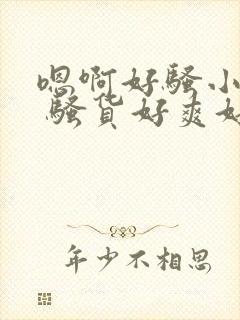 嗯啊好骚小
骚货好爽好
年少不相思